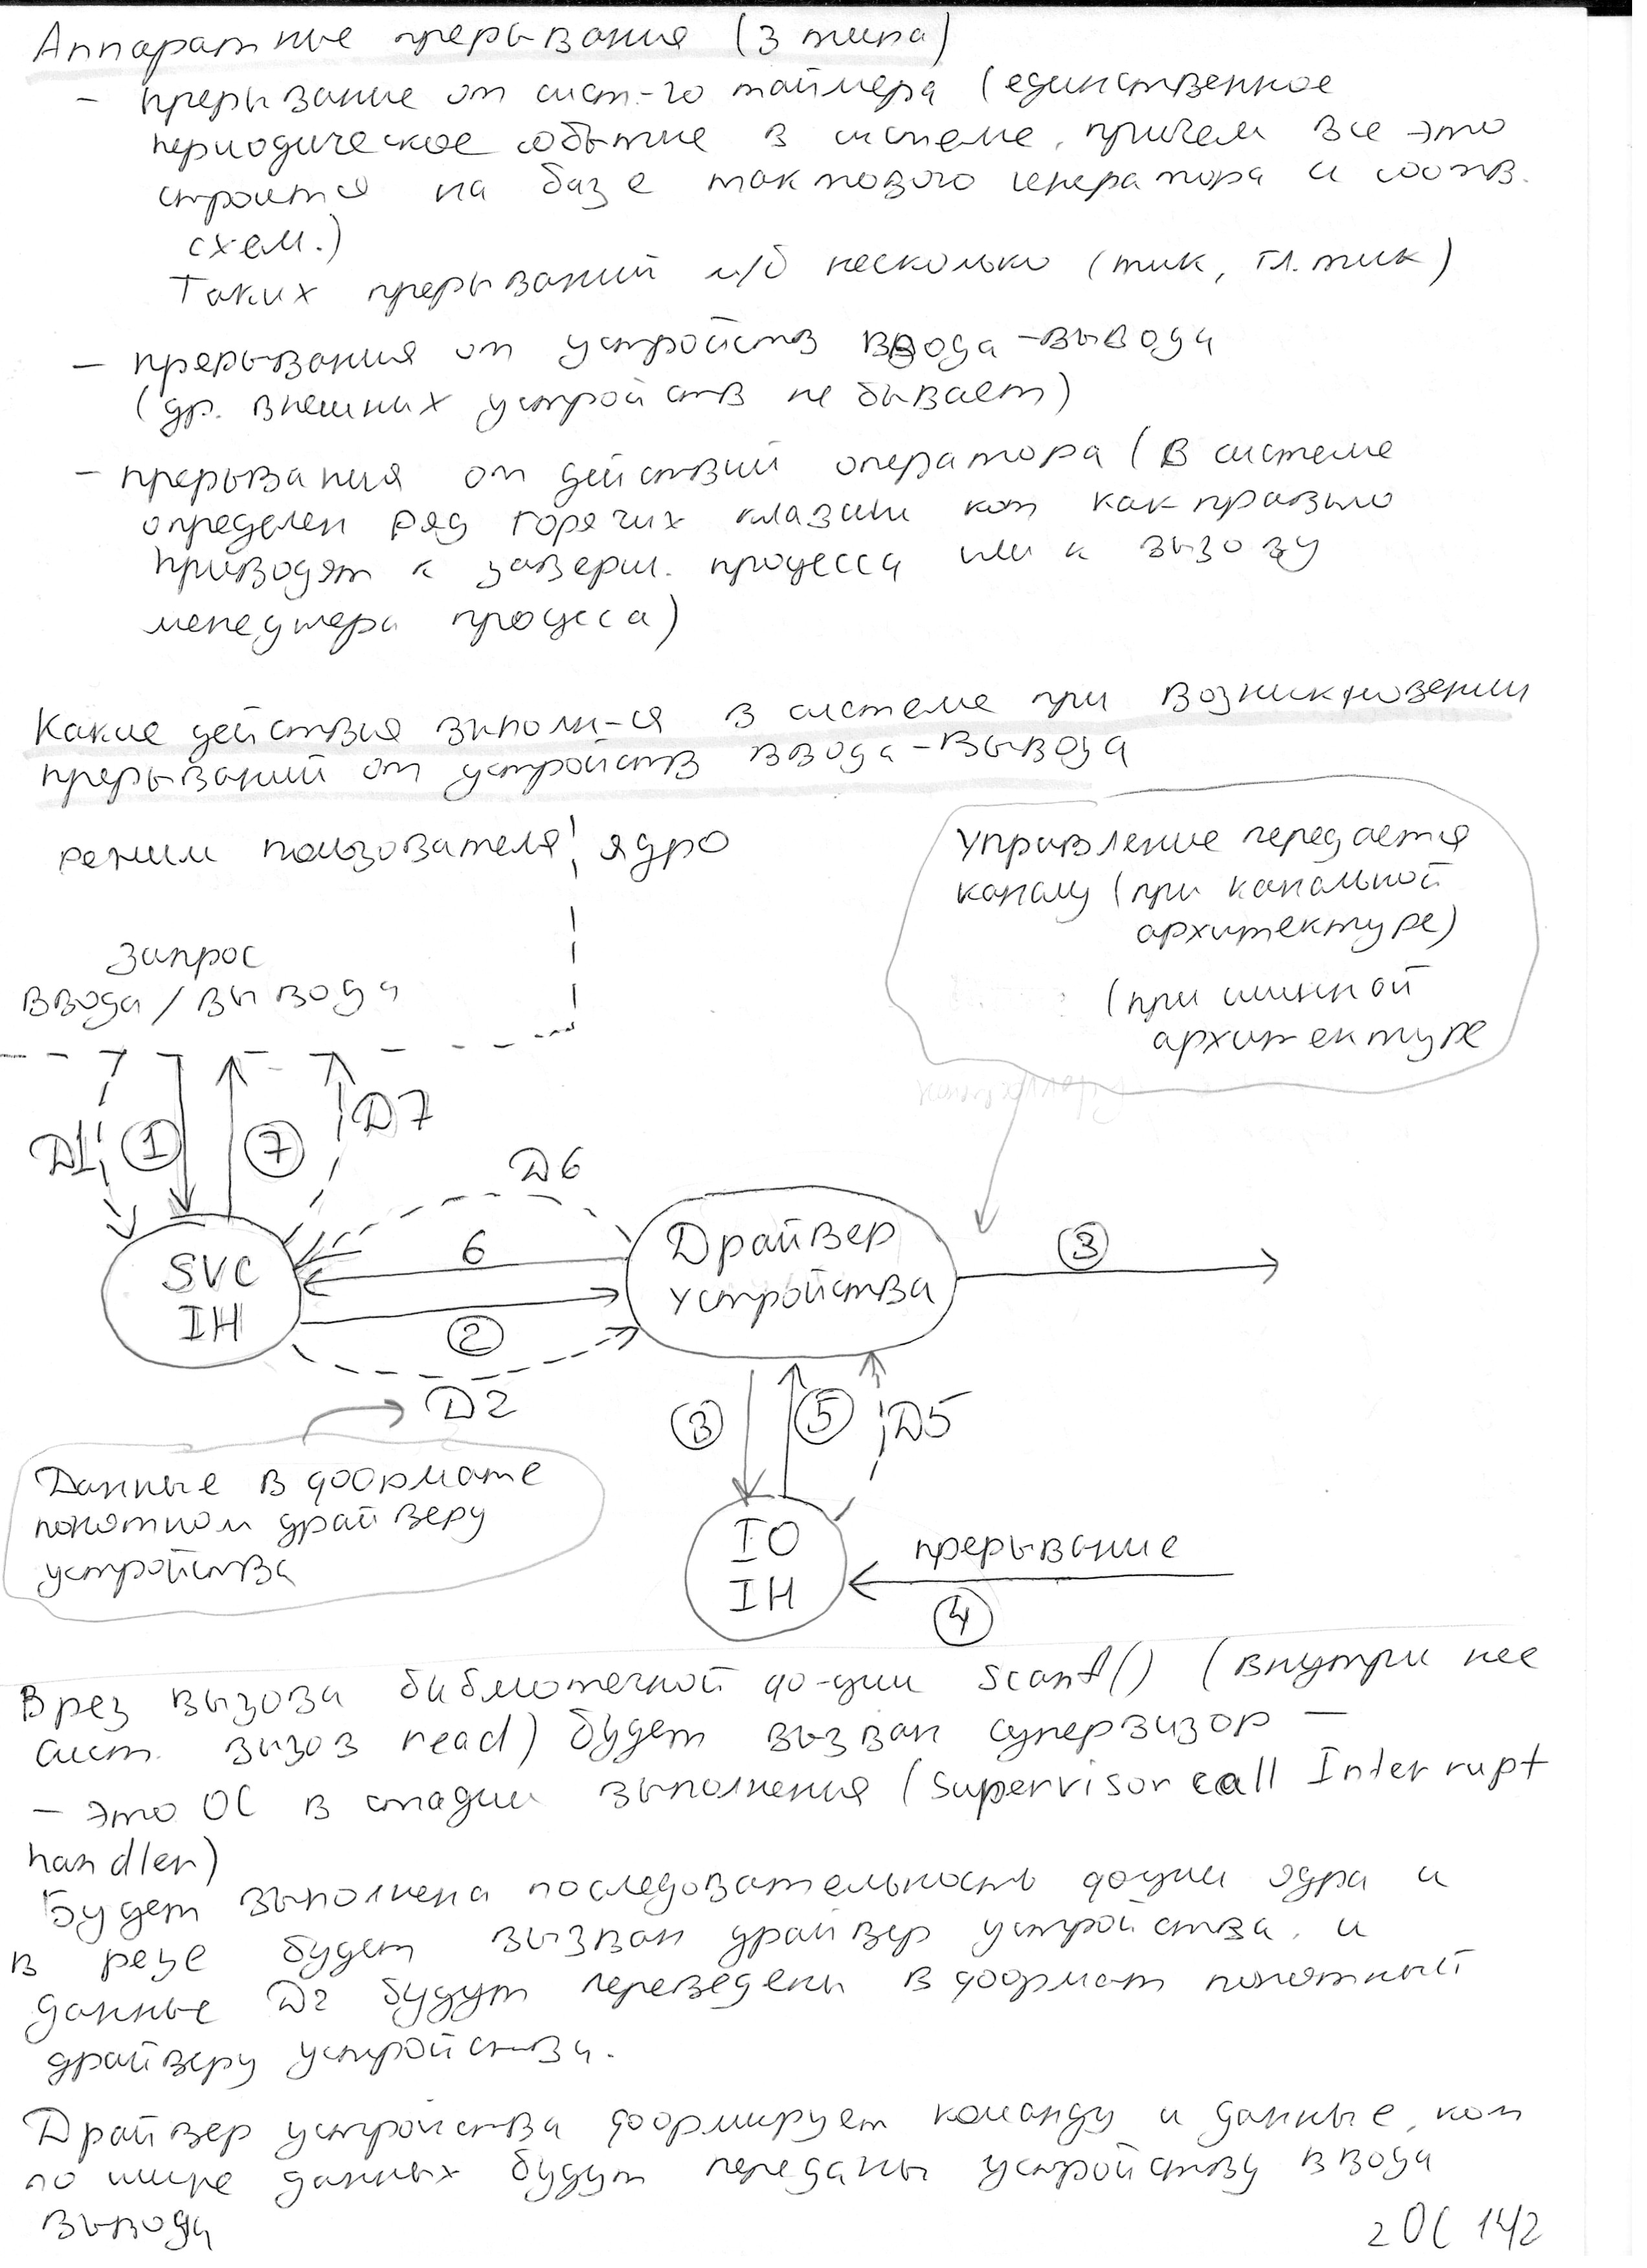 Аппаратные прерывания (3 типа)
- прерывание от сист-го таймера (единственное
периодическое событие в системе, причем все это
строится на базе тактового генератора и соотв.
схем.)
Таких прерываний м/б несколько (тик, гл. тик)
- прерывания от устройств ввода-вывода
(др. внешних устройств не бывает)
- прерывания от действий оператора (в системе
определен ряд горячих клавиш кот как правило
приводят к заверш. процесса или к вызову
менеджера процесса)
Какие действия выполн-ся в системе при возникновении
прерываний от устройств ввода-вывода
режим пользователя ядро
Управление передается
каналу (при канальной
архитектуре)
запрос
ввода/вывода
(при шинной
архитектуре
Д1 1 7 Д7
Д6
SVC
IH
6
2
Драйвер
устройства
3
Д2
3 5 Д5
Данные в формате
понятном драйверу
устройства
IO
IH
прерывание
4
В рез вызова библиотечной ф-ции scanf() (внутри нее
сист. вызов read) будет вызван супервизор -
- это ОС в стадии выполнения (supervisor call Interrupt
handler)
Будет выполнена последовательность фции ядра и
в резе будет вызван драйвер устройства, и
данные Д2 будут переведены в формат понятный
драйверу устройства.
Драйвер устройства формирует команду и данные, кот
по шине данных будут переданы устройству ввода
вывода
2 ОС 14/2